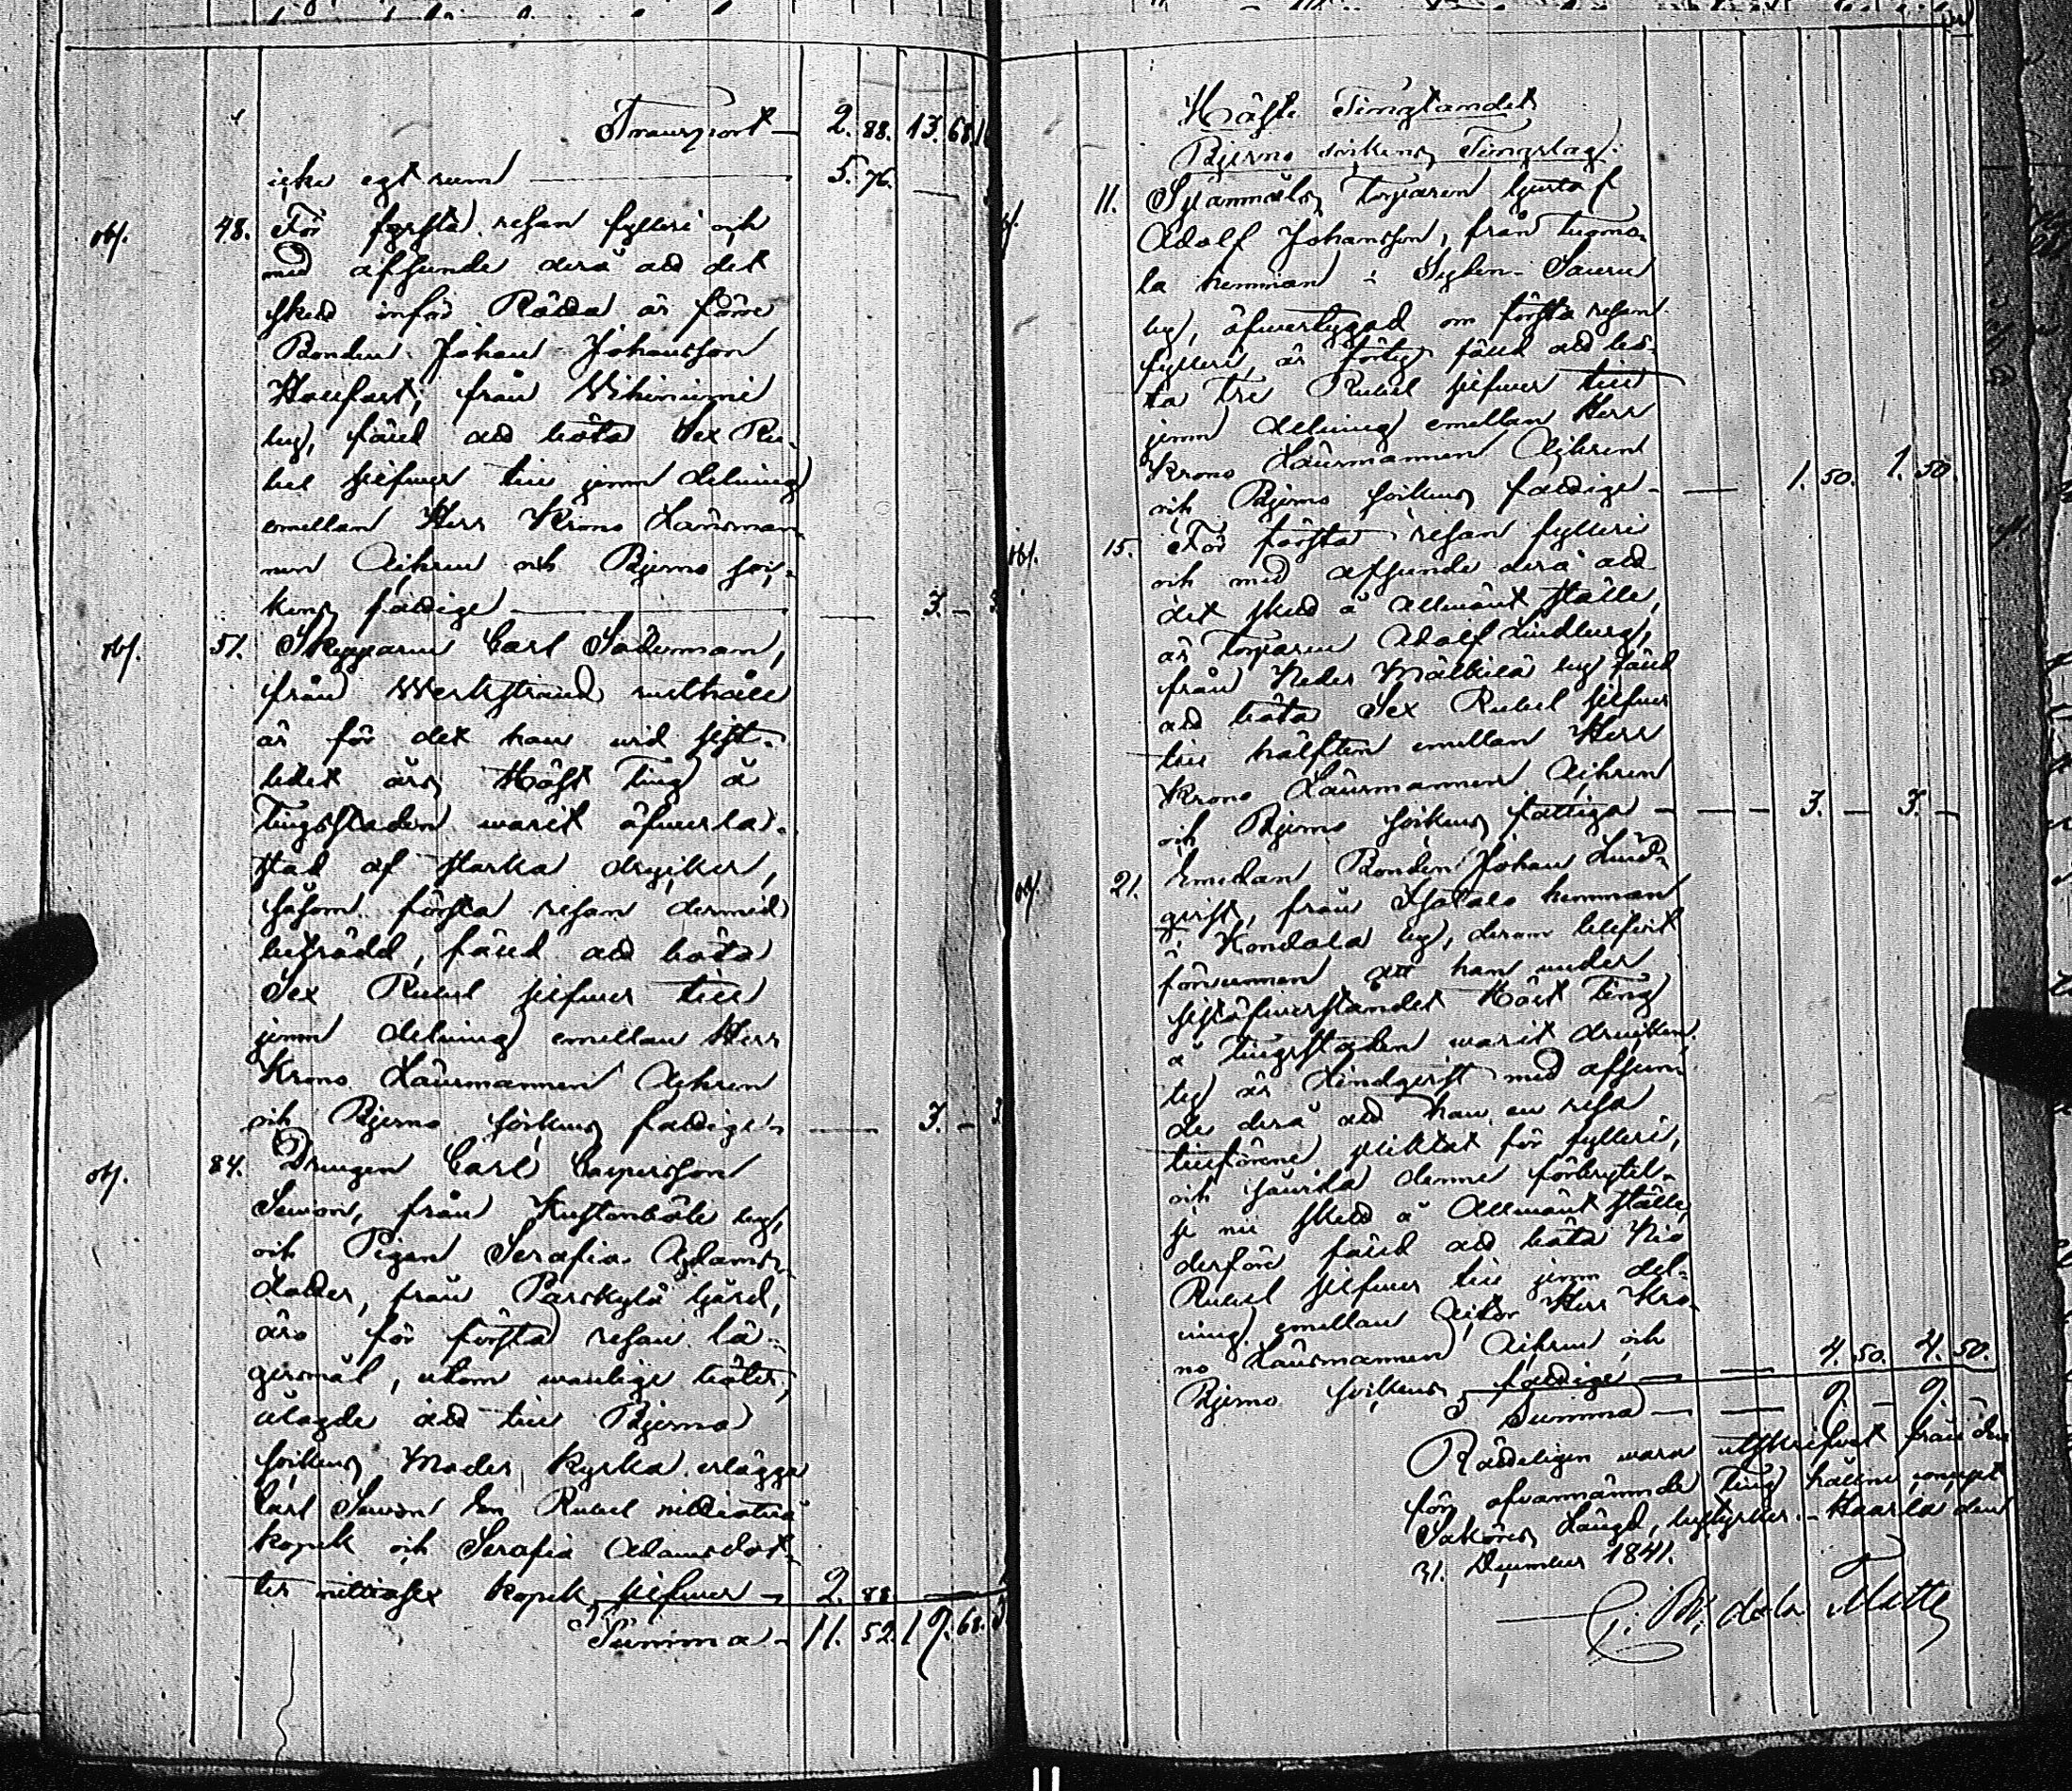 Transport — 2. 88. 13. 68.
icke egt rum — 5. 76. —
obs. 48. För första resan fylleri och
med afseende derå att det
skedd inför Rätta är förre
Bonden Johan Johansson
från
by, fäld att böta Sex Ru-
bel silfwer till jemn delning
emellan Herr Krono Länsman
nen och Bjerno soc-
kens fattige — 3. —
obs. 51. Skepparen Carl Söderman,
från rusthåll
är för det han wid sist-
ledet års Höst Ting å
Tingsstaden warit öfwerla-
stad af starka drycker,
såsom första resan dermed
beträdd, fäld att böta
Sex Rubel silfwer till
jemn delning emellan Herr
Krono Länsmannen
och Bjerno sockens fattige — 3. —
obs. 84. Drengen Carl Caspersson
från by,
och Pigan Serafia Adams-
dotter, från Pärskylä gård,
äro för första resan lä-
gersmål, utom wanlige böter,
ålagde att till Bjerno
sockens Moder kyrka erlägga
Carl En Rubel nittiotvå
kopek och Serafia Adamsdot-
ter nittiosex kopek silfwer — 2. 88. —
Summa — 11. 52. 19. 68.
Höste Tingtandet
Bjerno Sockens Tingslag.
11. Torparen Gustaf
Adolf Johansson, från Tuomo-
la hemman i
by, öfwertygad om första resan
fylleri, är förty fäld att bö-
ta Tre Rubel silfwer till
jemn delning emellan Herr
Krono Länsmannen
och Bjerno sockens fattige — 1. 50. 1. 50.
obs. 15. För första resan fylleri
och med afseende derå att
det skedd å allmänt ställe,
är Torparen Adolf Lindberg,
från Neder by fäld
att böta Sex Rubel silfwer
till hälften emellan Herr
Krono Länsmannen
och Bjerno sockens fattiga — 3. — 3. —
obs. 21. Emedan Bonden Johan Lind-
qvist, från hemman
i Kondala by, derom blifwit
förwunnen att han under
sistöfwerståndet Höst Ting
å Tingsstaden warit drucken
ty är Lindqvist med afseen-
de derå att han en resa
tillförene pliktat för fylleri,
och särda denne förbrytel-
se nu skedd å Allmänt ställe,
derföre fäld att böta Nio
Rubel silfwer till jemn del-
ning emellan Herr Kro-
no Länsmannen och
Bjerno sockens fattige — 4. 50. 4. 50.
Summa — 9 — 9 —
Rätteligen wara utskrifwet från den
för ofvannämnde Ting hållne concept
Saköres Längd, betyrker. – Haarla den
31. December 1841.